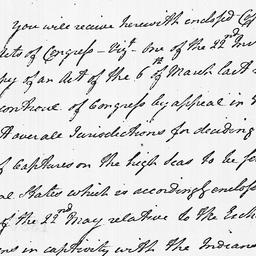 You will receive herewith enclosed
Acts of Congress - Vizt. one of the 22nd
py of an Act of the 6th of March last
controul of Congress by appeal in
t overale Jurisdictions for deciding
of Captures on the high Seas to be
al States which is accordingly enclos
of the 22nd May relative to the Exch
ns in captivity with the Indians